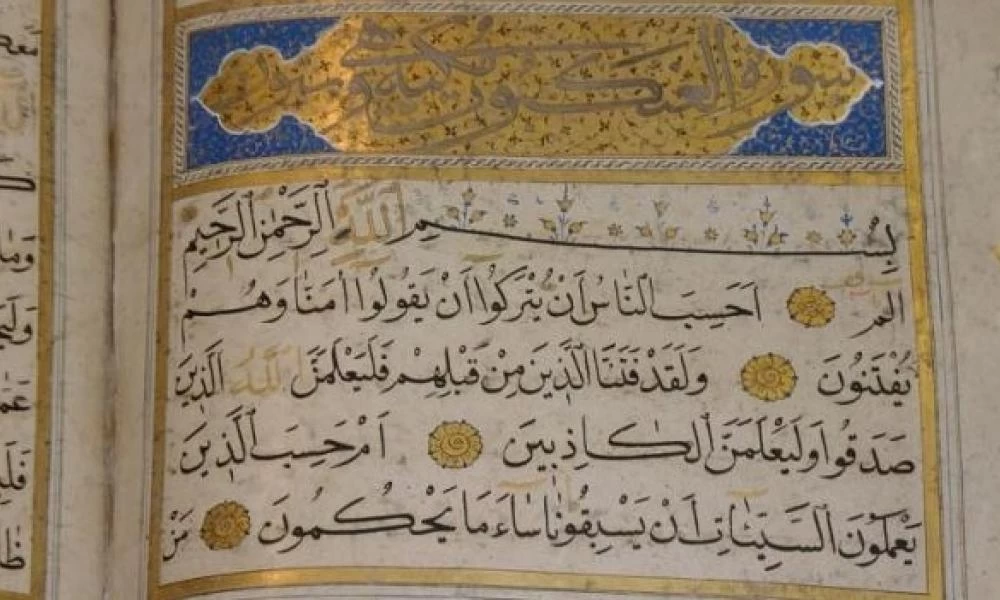 سورة العنكبوت مكية وهي
بِسْمِ اللَّهِ الرَّحْمٰنِ الرَّحِيمِ
الم اَحَسِبَ النَّاسُ اَنْ يُتْرَكُوا اَنْ يَقُولُوا اٰمَنَّا وَهُمْ
يُفْتَنُونَ وَلَقَدْ فَتَنَّا الَّذِينَ مِنْ قَبْلِهِمْ فَلَيَعْلَمَنَّ اللَّهُ الَّذِينَ
صَدَقُوا وَلَيَعْلَمَنَّ الْكَاذِبِينَ اَمْ حَسِبَ الَّذِينَ
يَعْمَلُونَ السَّيِّئَاتِ اَنْ يَسْبِقُونَا سَاءَ مَا يَحْكُمُونَ مَنْ